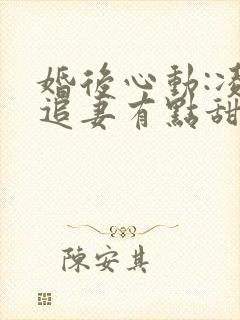 婚後心動:凌
追妻有點甜
陳安其